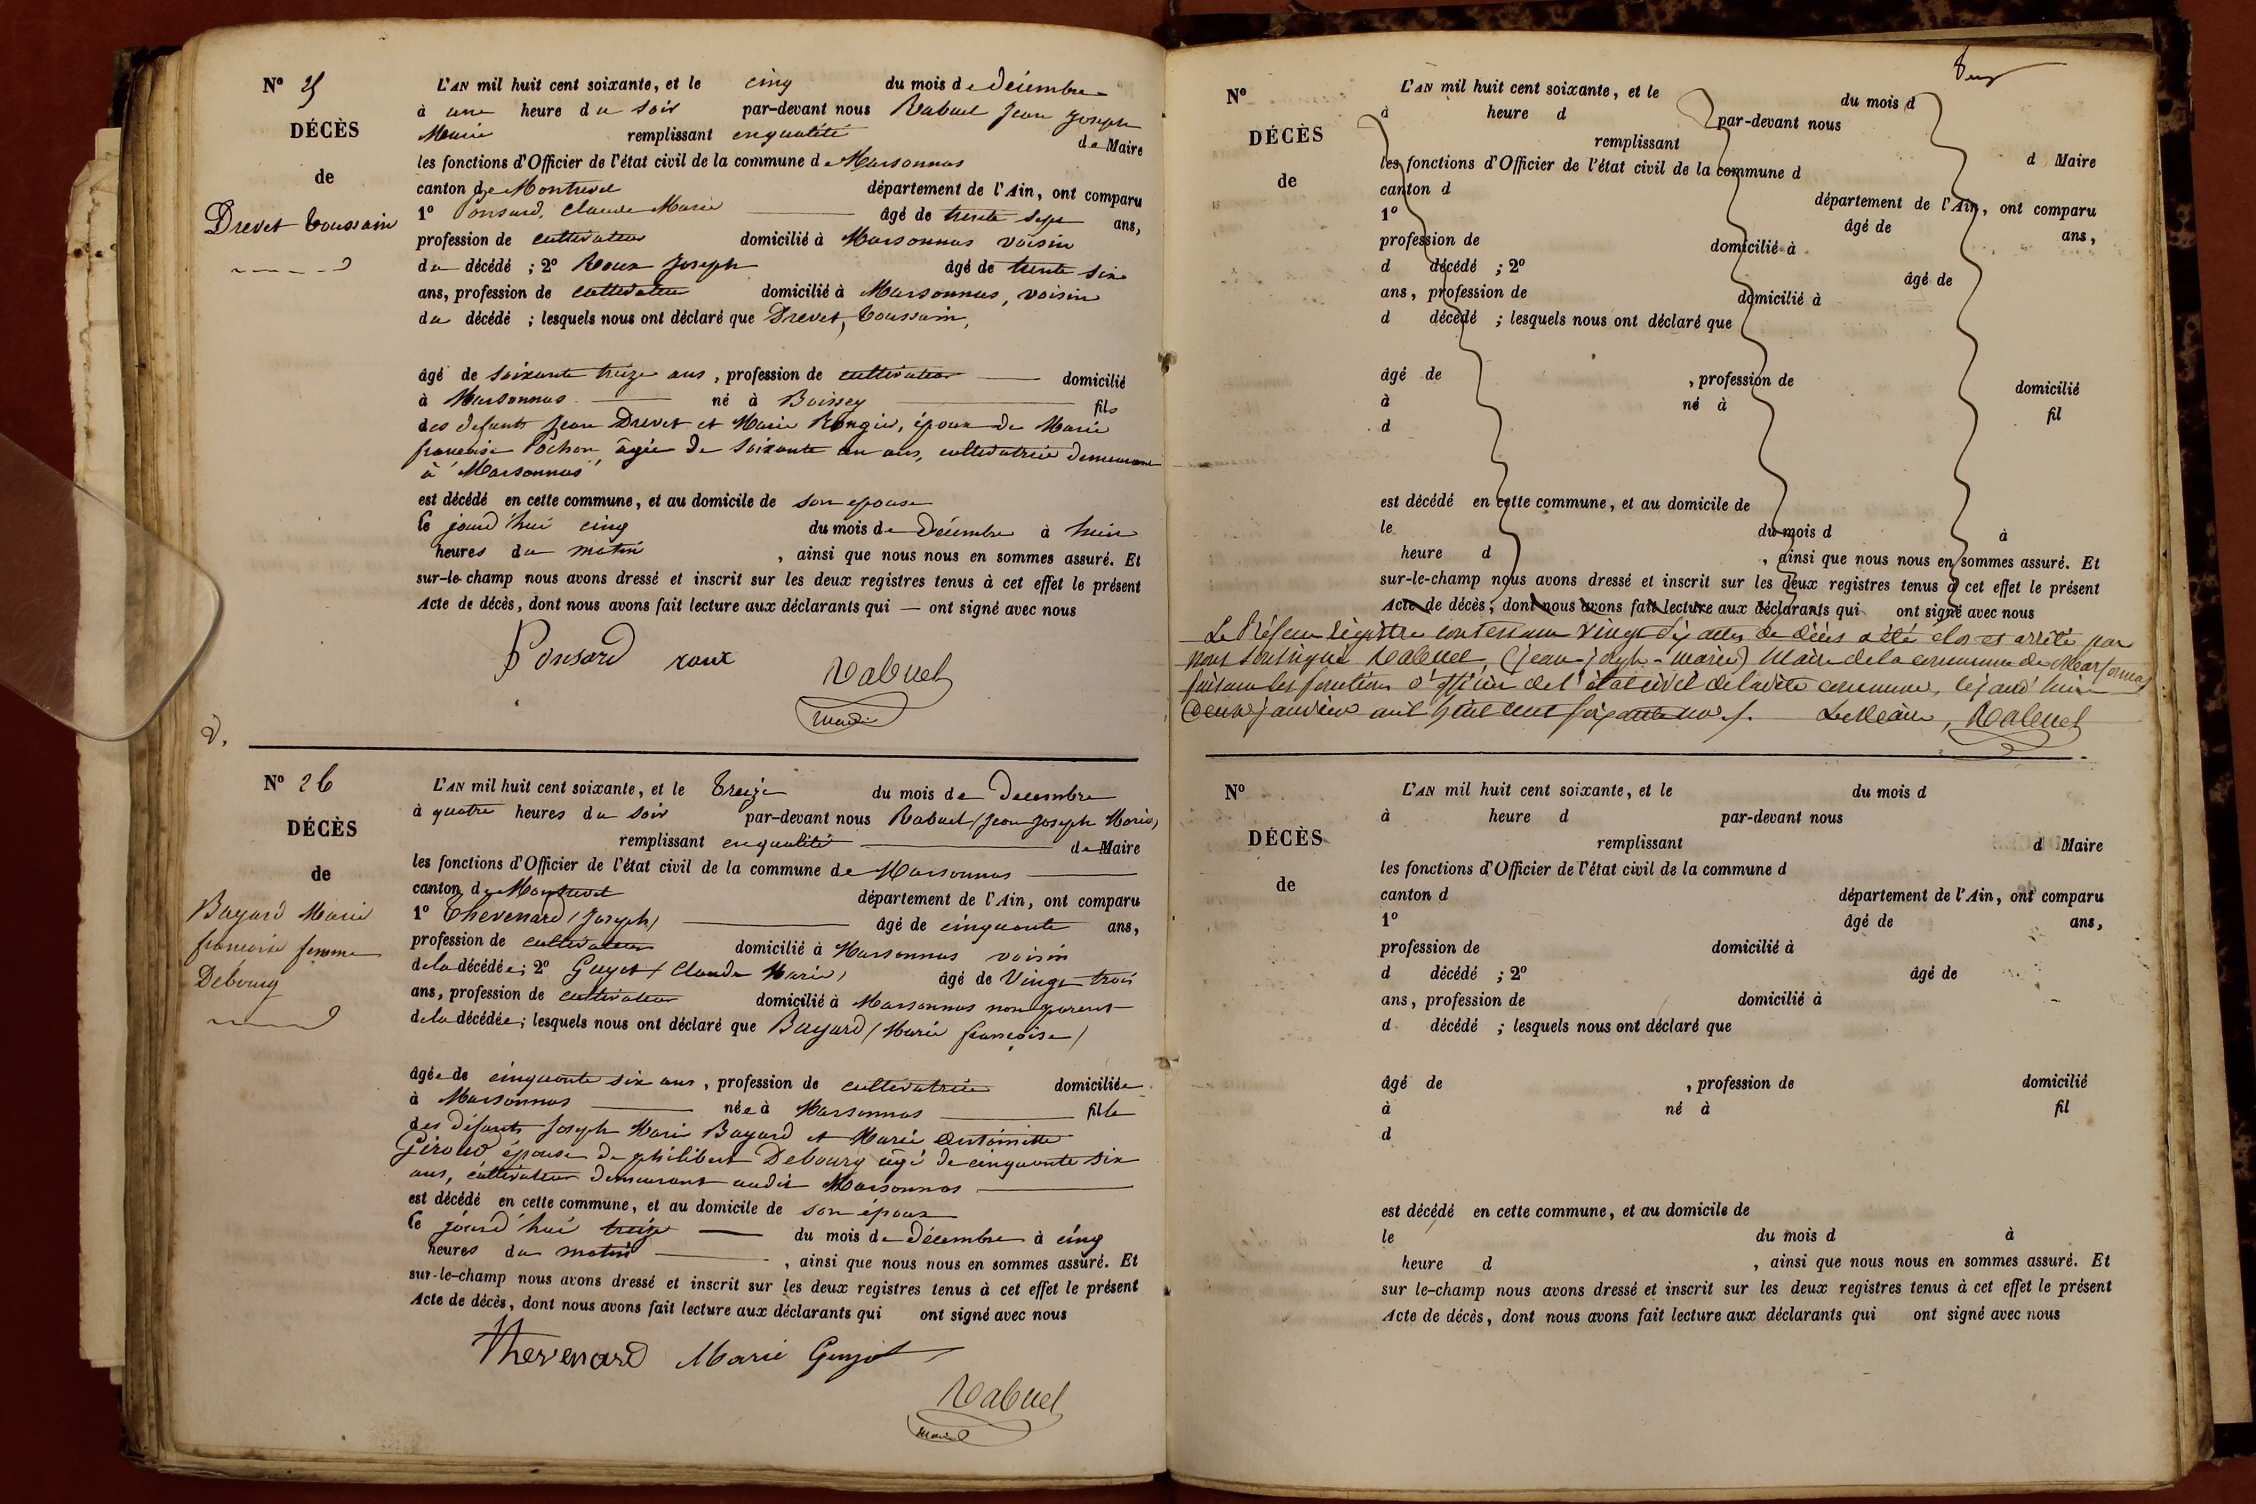 N° 25
DÉCÈS
de
Drevet Toussain
L'AN mil huit cent soixante, et le cinq du mois de décembre
à une heure du soir par-devant nous Rabuel Jean Joseph
Marie remplissant en qualité de Maire
les fonctions d'Officier de l'état civil de la commune de Marsonnas
canton de Montrevel département de l'Ain, ont comparu
1° Ponsard, Claude Marie âgé de trente sept ans,
profession de cultivateur domicilié à Marsonnas voisin
du décédé ; 2° Roux Joseph âgé de trente six
ans, profession de cultivateur domicilié à Marsonnas, voisin
du décédé ; lesquels nous ont déclaré que Drevet, Toussain,
âgé de soixante treize ans, profession de cultivateur domicilié
à Marsonnas né à Boissey fils
des defunts Jean Drevet et Marie Rongier, époux de Marie
francoise Pochon âgée de soixante un ans, cultivatrice demeurant
à Marsonnas
est décédé en cette commune, et au domicile de son epouse
Ce jourd'hui cinq du mois de Décembre à huit
heures du matin, ainsi que nous nous en sommes assuré. Et
sur-le-champ nous avons dressé et inscrit sur les deux registres tenus à cet effet le présent
Acte de décès, dont nous avons fait lecture aux déclarants qui — ont signé avec nous
Ponsard roux Rabuel
maire
N° 26
DÉCÈS
de
Bayard Marie
francoise femme
Debourg
L'AN mil huit cent soixante, et le Treize du mois de Decembre
à quatre heures du soir par-devant nous Rabuel (Jean Joseph Marie)
remplissant en qualité de Maire
les fonctions d'Officier de l'état civil de la commune de Marsonnas
canton de Montrevel département de l'Ain, ont comparu
1° Thevenard (Joseph) âgé de cinquante ans,
profession de cultivateur domicilié à Marsonnas voisin
de la décédée ; 2° Guyot (Claude Marie) âgé de Vingt trois
ans, profession de cultivateur domicilié à Marsonnas non parent
de la décédée ; lesquels nous ont déclaré que Bayard (Marie francoise)
âgée de cinquante six ans, profession de cultivatrice domiciliée
à Marsonnas née à Marsonnas fille
des défunts Joseph Marie Bayard et Marie Antoinette
Giroud épouse de philibert Debourg âgé de cinquante six
ans, cultivateur demeurant audit Marsonnas
est décédé en cette commune, et au domicile de son époux
Ce jourd'hui treize du mois de Décembre à cinq
heures du matin, ainsi que nous nous en sommes assuré. Et
sur-le-champ nous avons dressé et inscrit sur les deux registres tenus à cet effet le présent
Acte de décès, dont nous avons fait lecture aux déclarants qui ont signé avec nous
Thevenard Marie Guyot
Rabuel
maire
N°
DÉCÈS
de
L'AN mil huit cent soixante, et le du mois d
à heure d par-devant nous
remplissant d Maire
les fonctions d'Officier de l'état civil de la commune d
canton d département de l'Ain, ont comparu
1° âgé de ans,
profession de domicilié à
d décédé ; 2° âgé de
ans, profession de domicilié à
d décédé ; lesquels nous ont déclaré que
âgé de , profession de domicilié
à né à fil
d
est décédé en cette commune, et au domicile de
le du mois d à
heure d , ainsi que nous nous en sommes assuré. Et
sur-le-champ nous avons dressé et inscrit sur les deux registres tenus à cet effet le présent
Acte de décès, dont nous avons fait lecture aux déclarants qui ont signé avec nous
Le Présent régistre contenant vingt six actes de décès a été clos et arrêté par
nous soussigné Rabuel, (jean-joseph-marie) Maire de la commune de Marsonnas
faisant les fonctions d'officier de l'état civil de ladite commune, cejourd'hui
deux janvier mil huit cent soixante un. Le Maire, Rabuel
N°
DÉCÈS
de
L'AN mil huit cent soixante, et le du mois d
à heure d par-devant nous
remplissant d Maire
les fonctions d'Officier de l'état civil de la commune d
canton d département de l'Ain, ont comparu
1° âgé de ans,
profession de domicilié à
d décédé ; 2° âgé de
ans, profession de domicilié à
d décédé ; lesquels nous ont déclaré que
âgé de , profession de domicilié
à né à fil
d
est décédé en cette commune, et au domicile de
le du mois d à
heure d , ainsi que nous nous en sommes assuré. Et
sur le-champ nous avons dressé et inscrit sur les deux registres tenus à cet effet le présent
Acte de décès, dont nous avons fait lecture aux déclarants qui ont signé avec nous